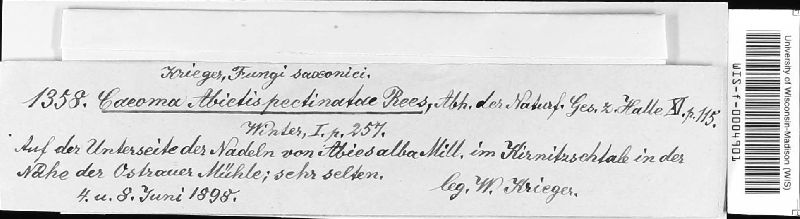 Krieger, Fungi saxonici.
1358. Caeoma Abietis pectinatae Rees, Abh. der Naturf. Ges. z. Halle XI. p. 115.
Winter, I. p. 257.
Auf der Unterseite der Nadeln von Abies alba Mill. im Kirnitzschtale in der
Nähe der Ostrauer Mühle; sehr selten.
4. u. 8. Juni 1898.
leg. W. Krieger.
University of Wisconsin-Madison (WIS)
WIS-f-0004991